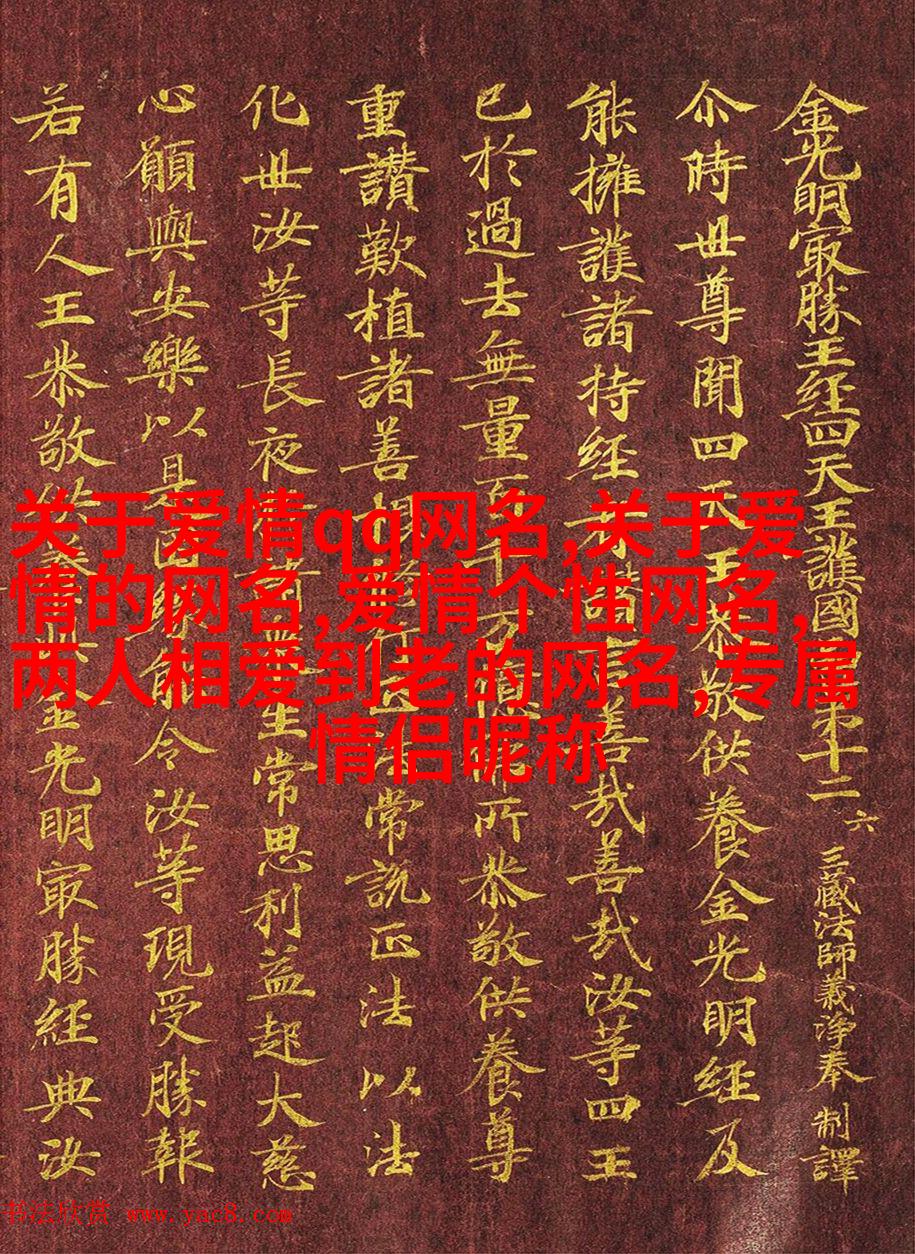 金光明㝡勝王経四天王護國
第十二
六
三藏法師義淨奉 制譯
尒時世尊聞四天王恭敬供養金光明経及
能擁護諸持経
善哉善哉汝等四王
已於過去無量百千万
所恭敬供養尊
重讃歎植諸善
常說正法以法
化世汝等長夜
生常思利益起大慈
心願與安樂以是因
能令汝等現受勝報
若有人王恭敬供養
金光明㝡勝経典汝
关于爱情qq网名,关于爱
情的网名,爱情个性网名,
两人相爱到老的网名,专属
情侣昵称
书法欣赏 www.yac8.com